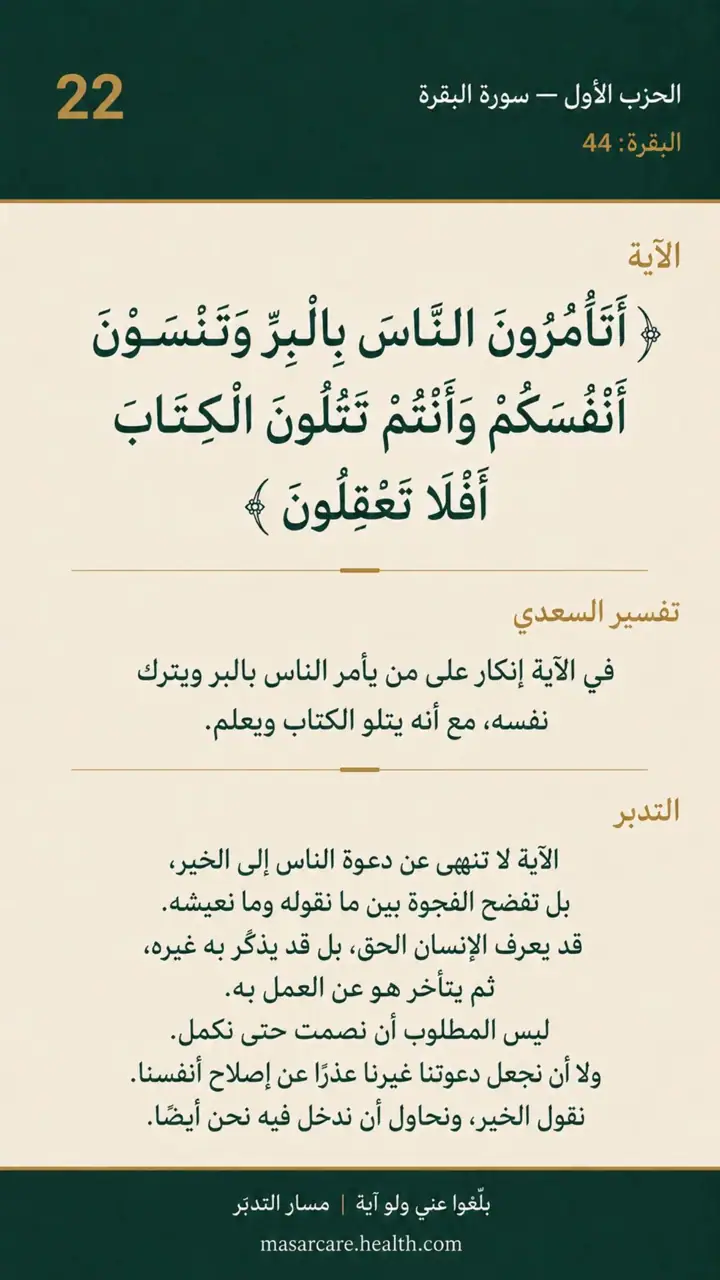 22
الحزب الأول — سورة البقرة
البقرة: 44
الآية
﴿ أَتَأْمُرُونَ النَّاسَ بِالْبِرِّ وَتَنْسَوْنَ
أَنْفُسَكُمْ وَأَنْتُمْ تَتْلُونَ الْكِتَابَ
أَفَلَا تَعْقِلُونَ ﴾
تفسير السعدي
في الآية إنكار على من يأمر الناس بالبر ويترك
نفسه، مع أنه يتلو الكتاب ويعلم.
التدبر
الآية لا تنهى عن دعوة الناس إلى الخير،
بل تفضح الفجوة بين ما نقوله وما نعيشه.
قد يعرف الإنسان الحق، بل قد يذكّر به غيره،
ثم يتأخر هو عن العمل به.
ليس المطلوب أن نصمت حتى نكمل.
ولا أن نجعل دعوتنا غيرنا عذرًا عن إصلاح أنفسنا.
نقول الخير، ونحاول أن ندخل فيه نحن أيضًا.
بلّغوا عني ولو آية | مسار التدبَر
masarcare.health.com